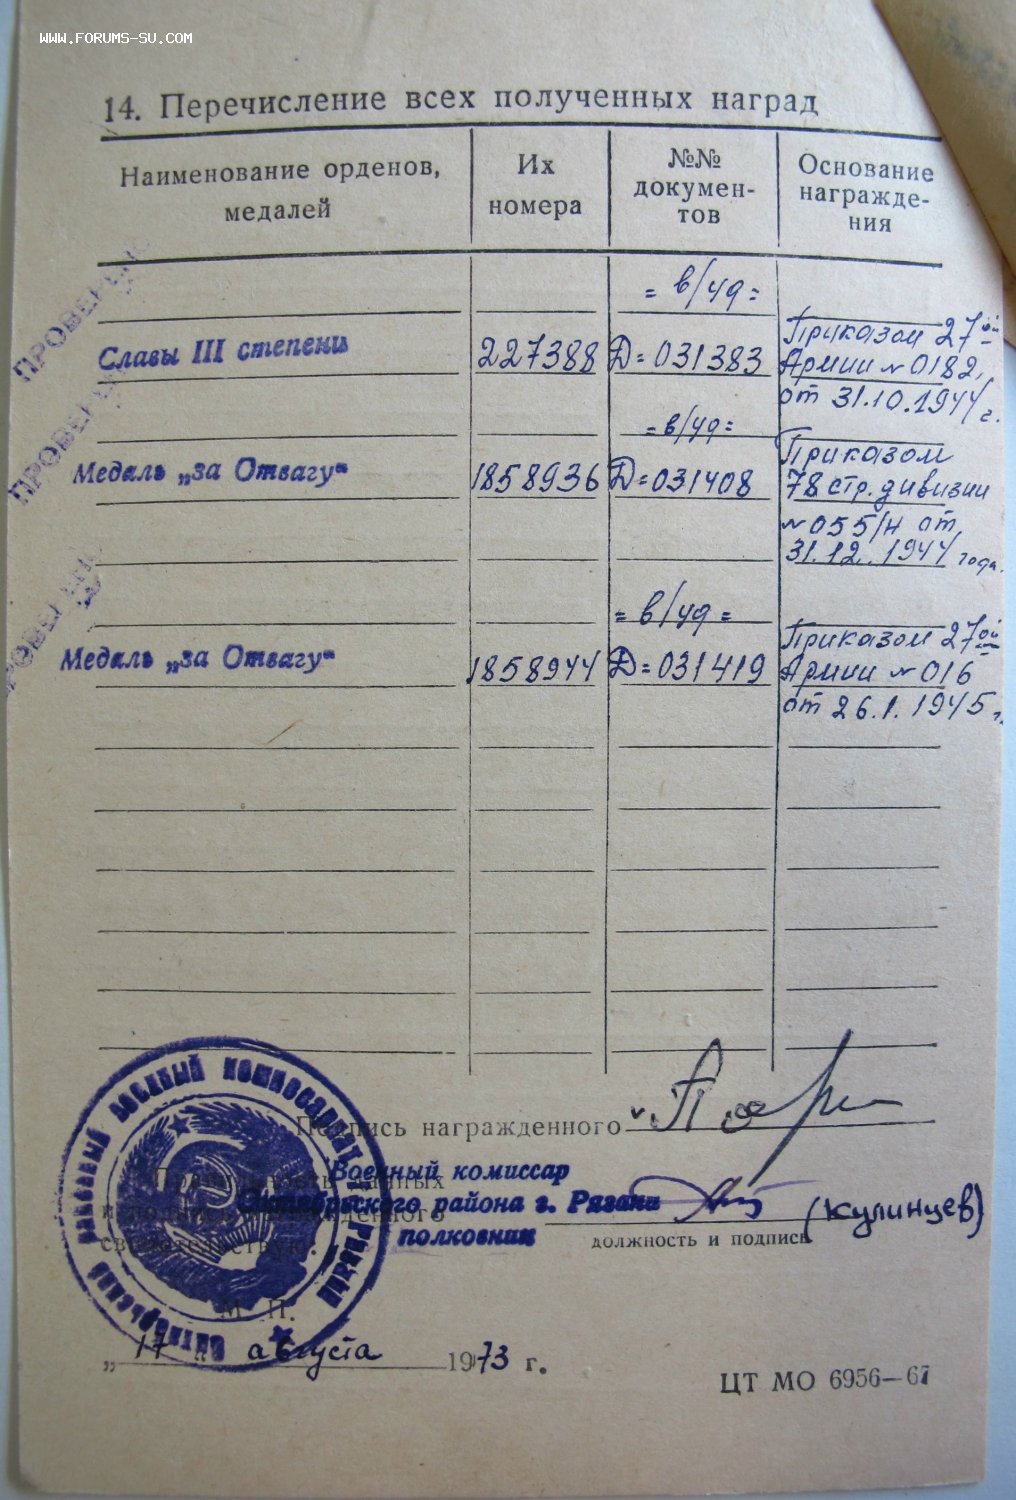 WWW.FORUMS-SU.COM
14. Перечисление всех полученных наград
Наименование орденов, медалей
Их номера
№№ докумен-
тов
Основание
награжде-
ния
ПРОВЕРЕНО
= в/уд =
Славы III степени
227388
Д=031383
Приказом 27ой
Армии № 0182,
от 31.10.1944 г.
ПРОВЕРЕНО
= в/уд =
Медаль „за Отвагу“
1858936
Д=031408
Приказом
78 стр. дивизии
№ 055/н от
31.12.1944 года.
ПРОВЕРЕНО
= в/уд =
Медаль „за Отвагу“
1858944
Д=031419
Приказом 27ой
Армии № 016
от 26.1.1945 г.
Подпись награжденного
Правильность данных
и подпись награжденного
свидетельствую.
Военный комиссар
Октябрьского района г. Рязани
полковник
(Кулинцев)
должность и подпись
М. П.
Октябрьский районный военный комиссариат г. Рязани
„17“ августа 1973 г.
ЦТ МО 6956—67